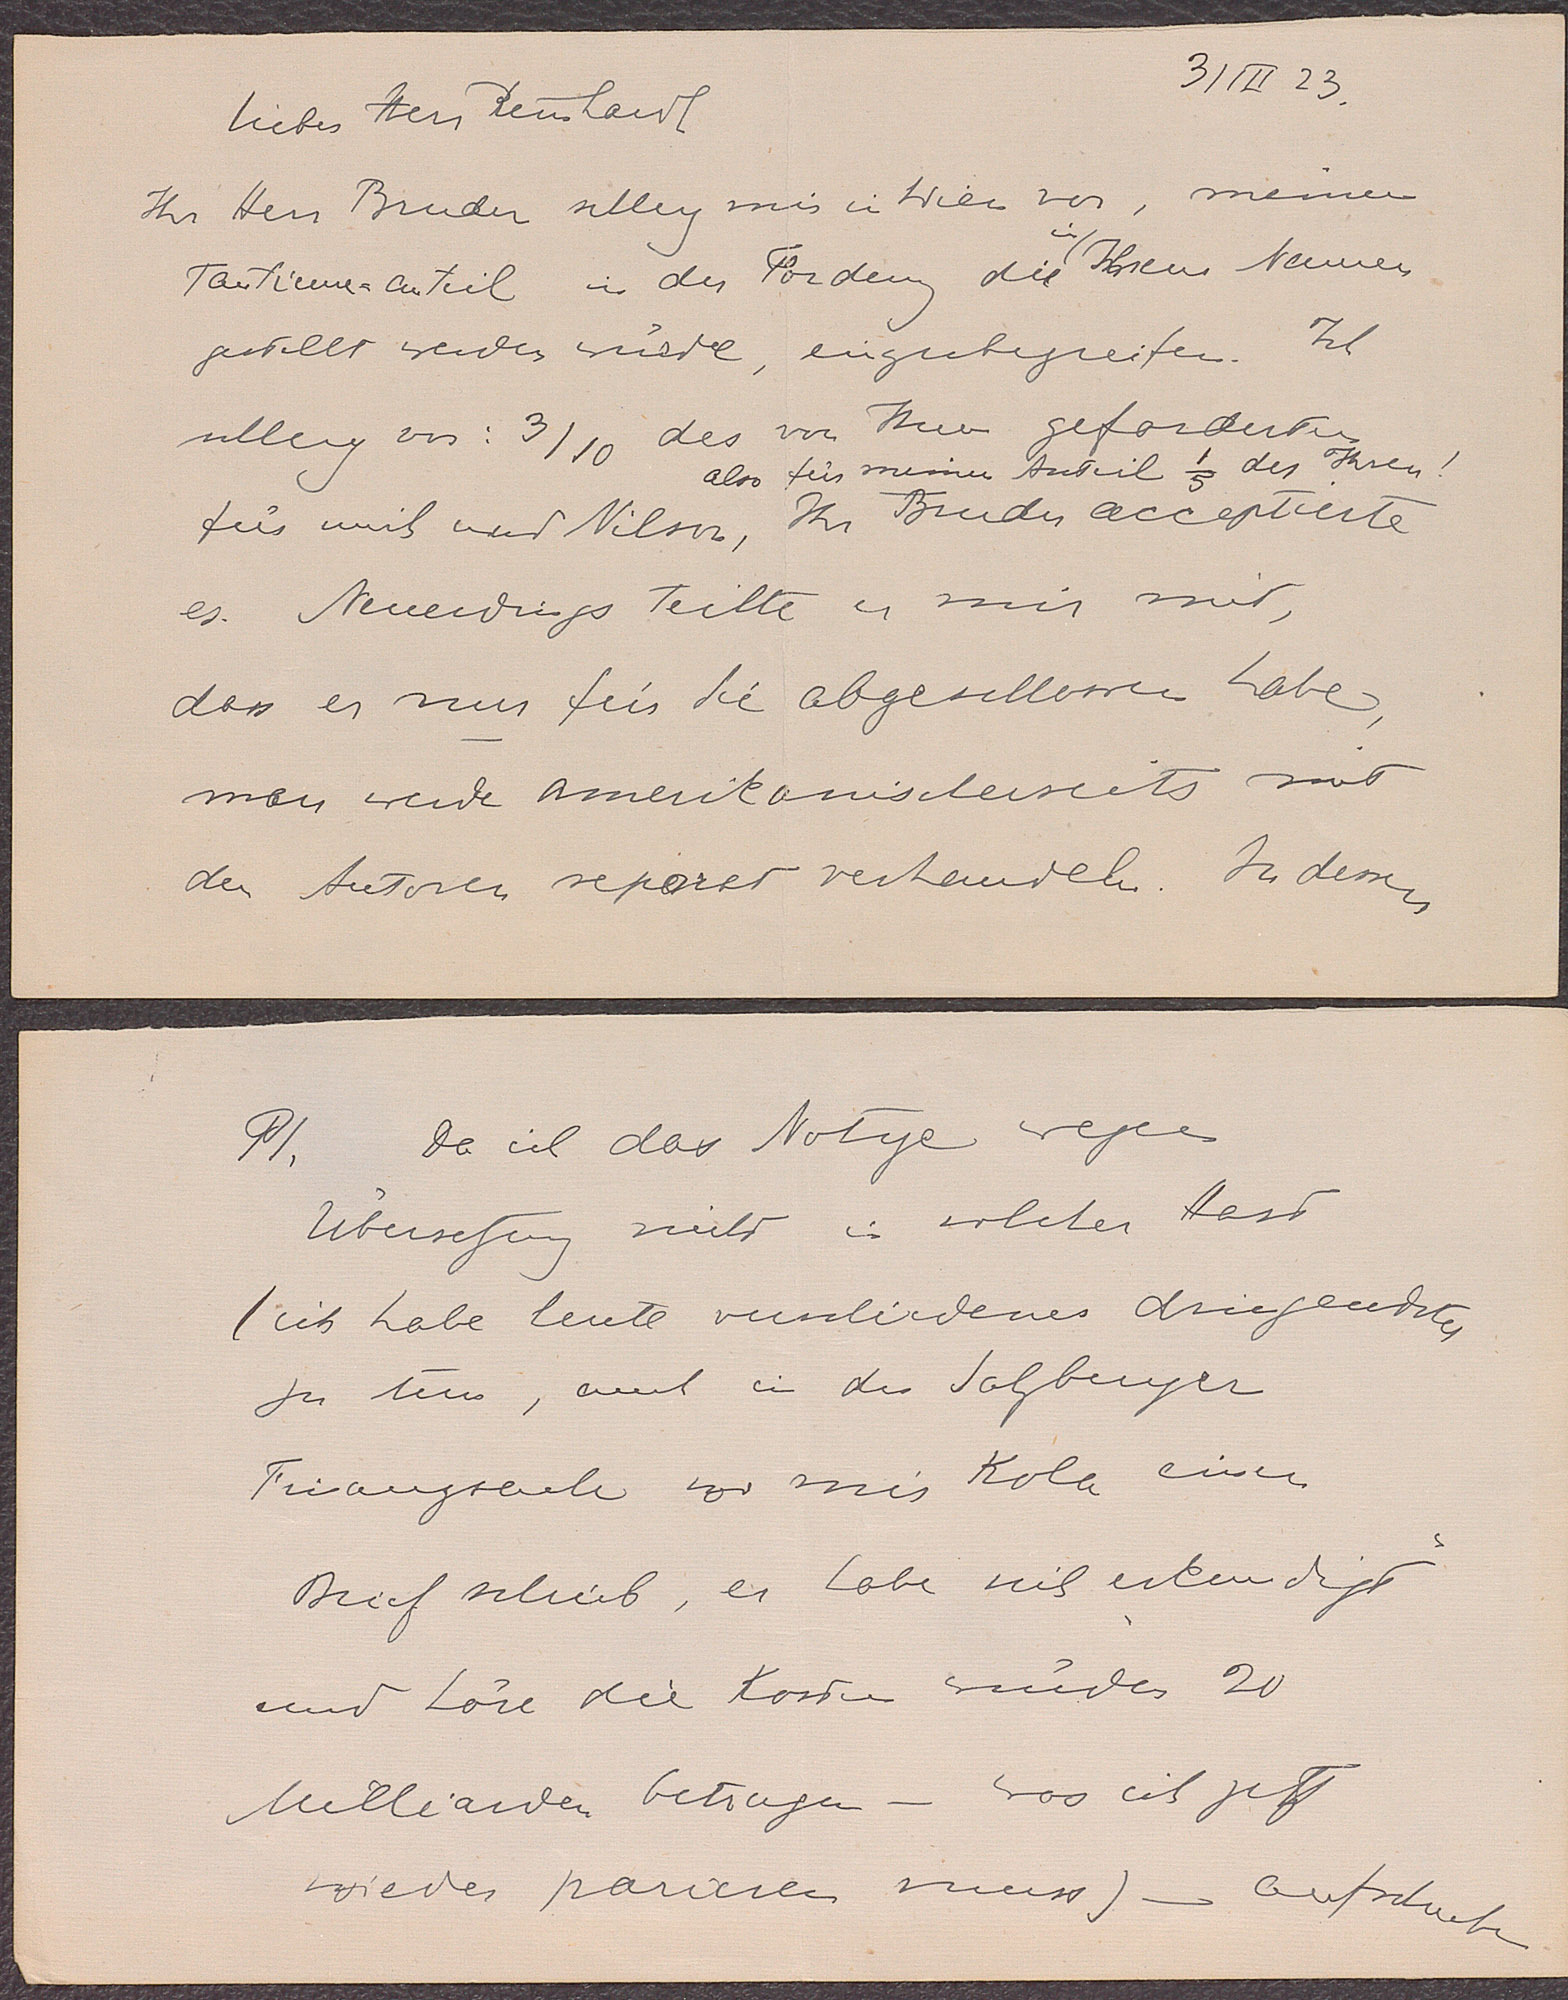 3/III 23.
Lieber Herr Reinhardt
Ihr Herr Bruder schlug mir in Wien vor, meinen
Tantieme=anteil in der Forderung die in Ihrem Namen
gestellt werden würde, einzubegreifen. Ich
schlug vor: 3/10 des von Ihnen geforderten
also für meinen Anteil 1/5 des Ihren!
für mich und Nilson, Ihr Bruder acceptierte
es. Neuerdings teilte er mir mit,
dass er nur für Sie abgeschlossen habe,
man werde amerikanischerseits mit
den Autoren separat verhandeln. Indessen
P/. Da ich das Notige wegen
Übersetzung nicht in solcher Hast
(ich habe heute verschiedenes dringendstes
zu tun, auch in der Salzburger
Finanzsache wo mir Kola einen
Brief schrieb, er habe sich erkundigt
und höre die Kosten würden 20
Milliarden betragen – was ich jetzt
wieder parieren muss) –